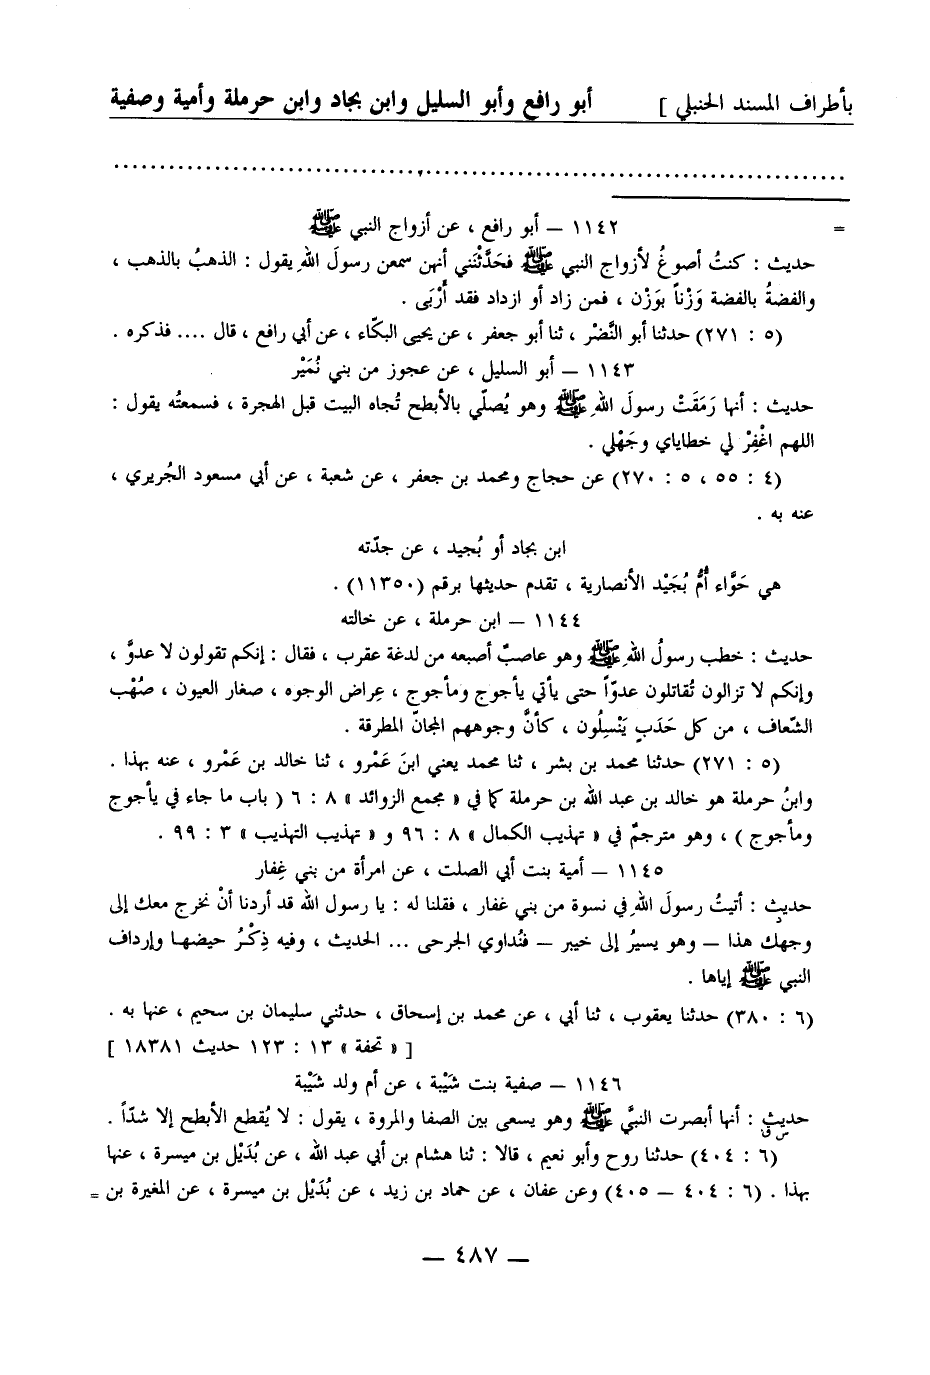 بأطراف المسند الحنبلي ] أبو رافع وأبو السليل وابن بجاد وابن حرملة وأمية وصفية
= ١١٤٢ — أبو رافع ، عن أزواج النبي ﷺ
حديث : كنتُ أصوغُ لأزواج النبي ﷺ فحَدَّثْنَني أنهن سمعن رسولَ اللهِ يقول : الذهبُ بالذهب ،
والفضةُ بالفضة وَزْناً بوَزْن ، فمن زاد أو ازداد فقد أَرْبَى .
(٥ : ٢٧١) حدثنا أبو النَّضْر ، ثنا أبو جعفر ، عن يحيى البكّاء ، عن أبي رافع ، قال .... فذكره .
١١٤٣ — أبو السليل ، عن عجوز من بني نُمَيْر
حديث : أنها رَمَقَتْ رسولَ اللهِ ﷺ وهو يُصلّي بالأبطح تُجاه البيت قبل الهجرة ، فسمعتُه يقول :
اللهم اغْفِرْ لي خطاياي وجَهْلي .
(٤ : ٥٥ ، ٥ : ٢٧٠) عن حجاج ومحمد بن جعفر ، عن شعبة ، عن أبي مسعود الجُريري ،
عنه به .
ابن بجاد أو بُجيد ، عن جدّته
هي حَوَّاء أُمُّ بُجَيْد الأنصارية ، تقدم حديثها برقم (١١٣٥٠) .
١١٤٤ — ابن حرملة ، عن خالته
حديث : خطب رسولُ اللهِ ﷺ وهو عاصبٌ أصبعه من لدغة عقرب ، فقال : إنكم تقولون لا عدوَّ ،
وإنكم لا تزالون تُقاتلون عدوّاً حتى يأتي يأجوج ومأجوج ، عِراض الوجوه ، صغار العيون ، صُهْب
الشّعاف ، من كل حَدَبٍ يَنْسِلُون ، كأنَّ وجوههم المجانّ المطرقة .
(٥ : ٢٧١) حدثنا محمد بن بشر ، ثنا محمد يعني ابنَ عَمْرو ، ثنا خالد بن عَمْرو ، عنه بهذا .
وابنُ حرملة هو خالد بن عبد الله بن حرملة كما في « مجمع الزوائد » ٨ : ٦ ( باب ما جاء في يأجوج
ومأجوج ) ، وهو مترجمٌ في « تهذيب الكمال » ٨ : ٩٦ و « تهذيب التهذيب » ٣ : ٩٩ .
١١٤٥ — أمية بنت أبي الصلت ، عن امرأة من بني غِفار
حديث : أتيتُ رسولَ اللهِ في نسوة من بني غفار ، فقلنا له : يا رسول الله قد أردنا أنْ نخرج معك إلى
د
وجهك هذا — وهو يسيرُ إلى خيبر — فنُداوي الجرحى ... الحديث ، وفيه ذِكْرُ حيضها وإرداف
النبي ﷺ إياها .
(٦ : ٣٨٠) حدثنا يعقوب ، ثنا أبي ، عن محمد بن إسحاق ، حدثني سليمان بن سحيم ، عنها به .
[ « تحفة » ١٣ : ١٢٣ حديث ١٨٣٨١ ]
١١٤٦ — صفية بنت شَيْبة ، عن أم ولد شَيْبة
حديث : أنها أبصرت النبيَّ ﷺ وهو يسعى بين الصفا والمروة ، يقول : لا يُقطع الأبطح إلا شدّاً .
س ق
(٦ : ٤٠٤) حدثنا روح وأبو نعيم ، قالا : ثنا هشام بن أبي عبد الله ، عن بُدَيْل بن ميسرة ، عنها
بهذا . (٦ : ٤٠٤ — ٤٠٥) وعن عفان ، عن حماد بن زيد ، عن بُدَيْل بن ميسرة ، عن المغيرة بن =
— ٤٨٧ —